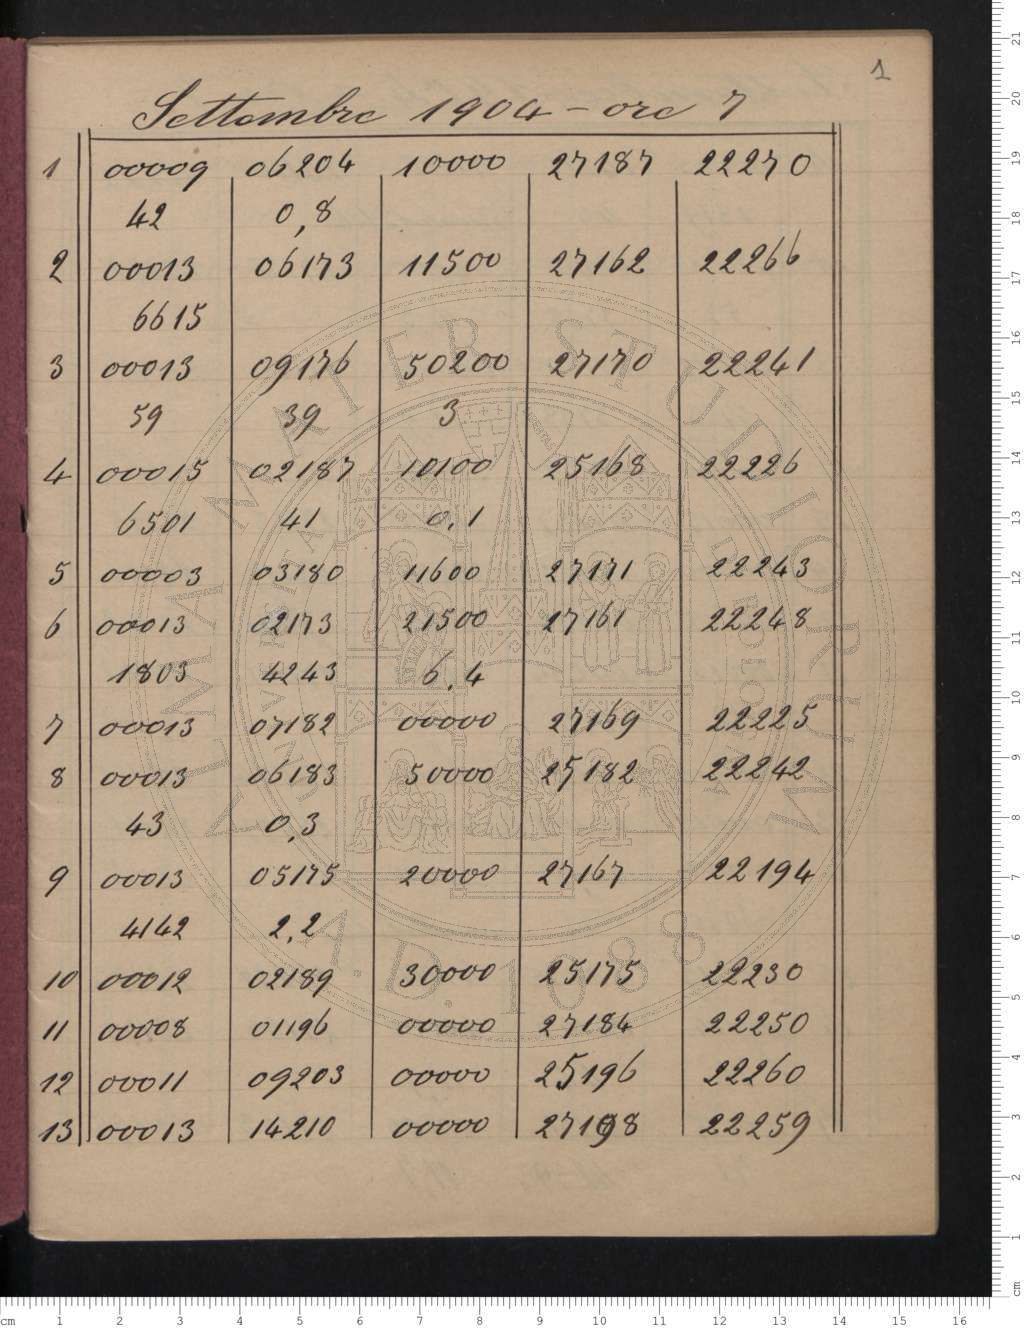 1
Settembre 1904 - ore 7
1 00009 06204 10000 27187 22270
42 0,8
2 00013 06173 11500 27162 22266
6615
3 00013 09176 50200 27170 22241
59 39 3
4 00015 02187 10100 25168 22226
6501 41 0,1
5 00003 03180 11600 27171 22243
6 00013 02173 21500 27161 22248
1803 4243 6,4
7 00013 07182 00000 27169 22225
8 00013 06183 50000 25182 22242
43 0,3
9 00013 05175 20000 27167 22194
4142 2,2
10 00012 02189 30000 25175 22230
11 00008 01196 00000 27184 22250
12 00011 09203 00000 25196 22260
13 00013 14210 00000 27198 22259
ALMA MATER STUDIORUM
A.D. 1088
cm 1 2 3 4 5 6 7 8 9 10 11 12 13 14 15 16
cm 1 2 3 4 5 6 7 8 9 10 11 12 13 14 15 16 17 18 19 20 21